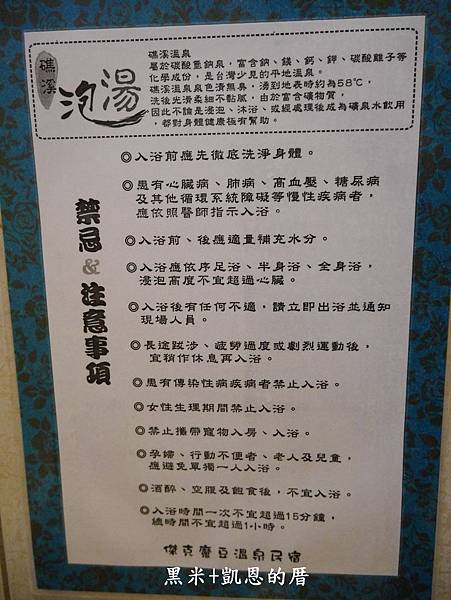 礁溪
泡湯
礁溪溫泉
屬於碳酸氫鈉泉，富含鈉、鎂、鈣、鉀、碳酸離子等
化學成份，是台灣少見的平地溫泉。
礁溪溫泉泉色清無臭，湧到地表時約為58℃，
洗後光滑柔細不黏膩，由於富含礦物質，
因此不論是浸泡、沐浴、或經處理後成為礦泉水飲用
，都對身體健康極有幫助。
禁忌&注意事項
◎入浴前應先徹底洗淨身體。
◎患有心臟病、肺病、高血壓、糖尿病
及其他循環系統障礙等慢性疾病者，
應依照醫師指示入浴。
◎入浴前、後應適量補充水分。
◎入浴應依序足浴、半身浴、全身浴，
浸泡高度不宜超過心臟。
◎入浴後有任何不適，請立即出浴並通知
現場人員。
◎長途跋涉、疲勞過度或劇烈運動後，
宜稍作休息再入浴。
◎患有傳染性病疾病者禁止入浴。
◎女性生理期間禁止入浴。
◎禁止攜帶寵物入房、入浴。
◎孕婦、行動不便者、老人及兒童，
應避免單獨一人入浴。
◎酒醉、空腹及飽食後，不宜入浴。
◎入浴時間一次不宜超過15分鐘，
總時間不宜超過1小時。
傑克魔豆溫泉民宿
黑米+凱恩的厝